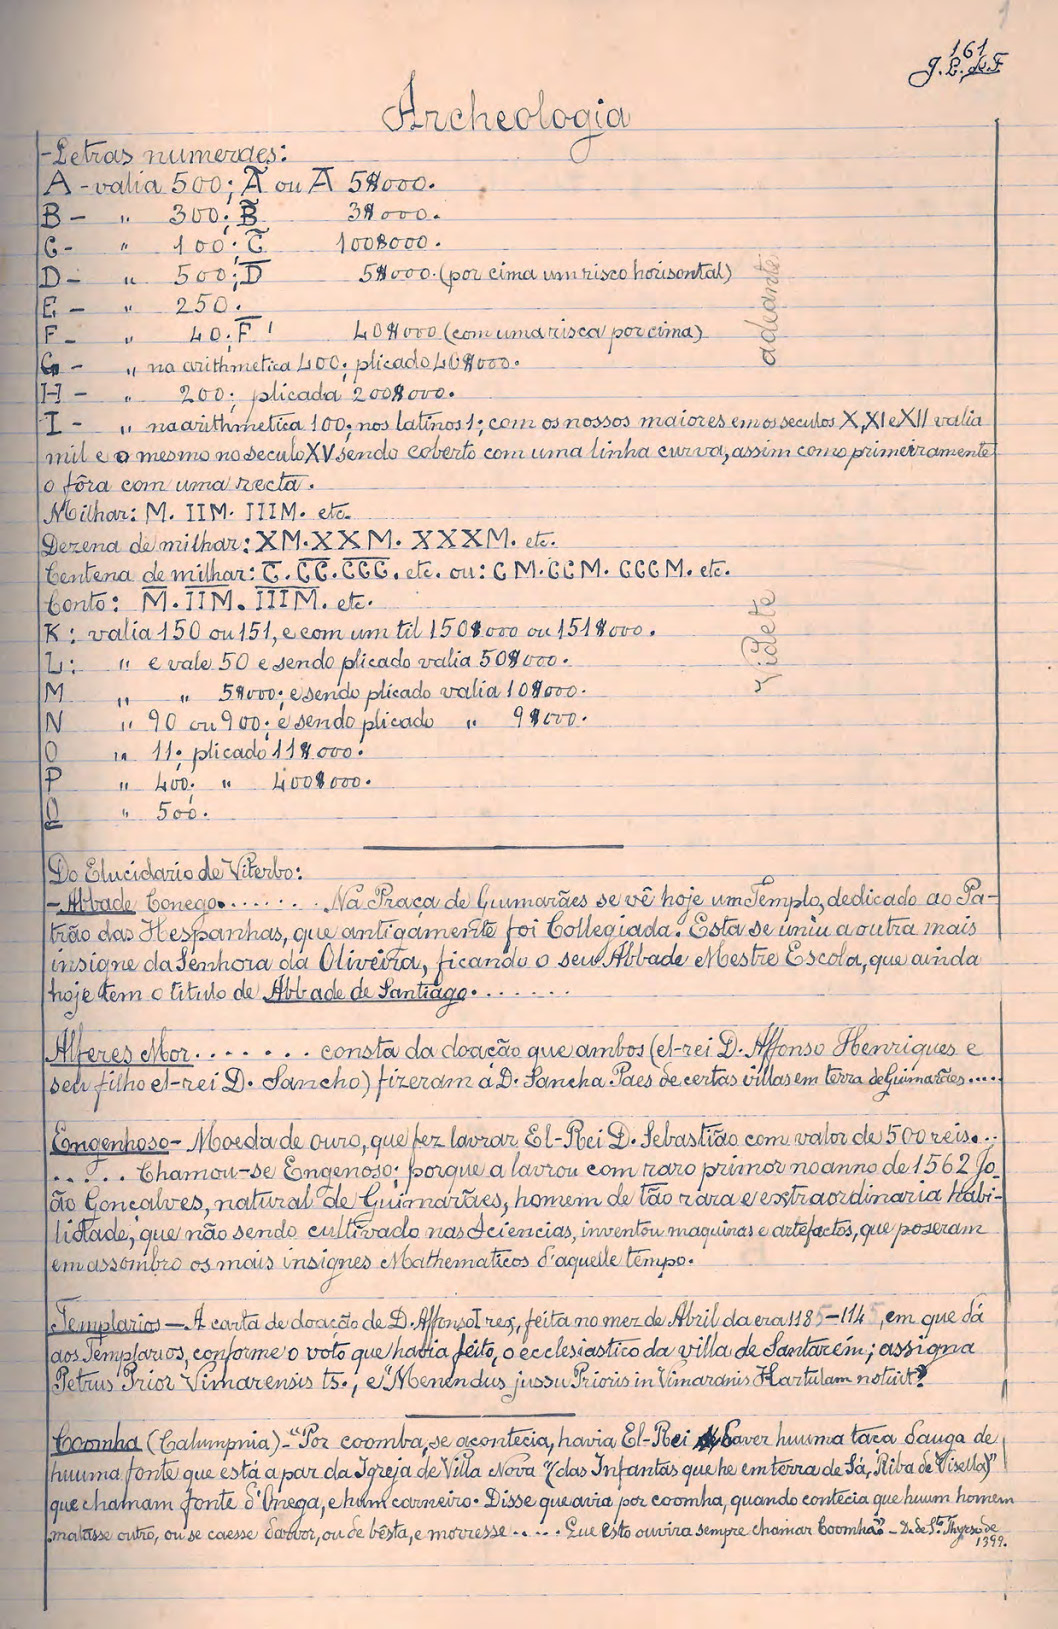 161
J. L. de F.
Archeologia
-Letras numeraes:
A - valia 500; Ã ou Ā 5$000.
B - " 300; B̃ 3$000.
C - " 100; C̃ 100$000.
D - " 500; D̄ 5$000. (por cima um risco horisontal)
E - " 250.
F - " 40; F̄ 40$000 (com uma risca por cima)
G - " na arithmetica 400; plicado 40$000.
H - " 200; plicada 200$000.
I - " na arithmetica 100; nos latinos 1; com os nossos maiores em os seculos X, XI e XII valia
mil e o mesmo no seculo XV sendo coberto com uma linha curva, assim como primeiramente
o fôra com uma recta.
Milhar: M. IIM. IIIM. etc.
Dezena de milhar: XM. XXM. XXXM. etc.
Centena de milhar: C̄. C̄C̄. C̄C̄C̄. etc. ou: CM. CCM. CCCM. etc.
Conto: M̄. ĪĪM̄. ĪĪĪM̄. etc.
K: valia 150 ou 151, e com um til 150$000 ou 151$000.
L: " e vale 50 e sendo plicado valia 50$000.
M " " 5$000; e sendo plicado valia 10$000.
N " 90 ou 900; e sendo plicado " 9$000.
O " 11; plicado 11$000.
P " 400; " 400$000.
Q " 500.
adeante
Videte
Do Elucidario de Viterbo:
-Abbade Conego. . . . . . . Na Praça de Guimarães se vê hoje um Templo, dedicado ao Pa-
trão das Hespanhas, que antigamente foi Collegiada. Esta se uniu a outra mais
insigne da Senhora da Oliveira, ficando o seu Abbade Mestre Escola, que ainda
hoje tem o titulo de Abbade de Santiago. . . . . . .
Alferes Mor. . . . . . . consta da doação que ambos (el-rei D. Affonso Henriques e
seu filho el-rei D. Sancho) fizeram á D. Sancha Paes de certas villas em terra de Guimarães....
Engenhoso - Moeda de ouro, que fez lavrar El-Rei D. Sebastião com valor de 500 reis...
. . . . . Chamou-se Engenoso; porque a lavrou com raro primor no anno de 1562 Jo
ão Gonçalves, natural de Guimarães, homem de tão rara e extraordinaria habi-
lidade, que não sendo cultivado nas Sciencias, inventou maquinas e artefactos, que poseram
em assombro os mais insignes Mathematicos d'aquelle tempo.
Templarios — A carta de doação de D. Affonso I rex, feita no mez de Abril da era 1185-1145, em que dá
aos Templarios, conforme o voto que havia feito, o ecclesiastico da villa de Santarém; assigna
Petrus Prior Vimarensis ts., e "Menendus jussu Prioris in Vimaranis Kartulam notuit"
Coomha (Calumpnia) - "Por coomba, se acontecia, havia El-Rei daver huuma taca dauga de
huuma fonte que está a par da Igreja de Villa Nova "(das Infantas que he em terra de Sá, Riba de Visella)"
que chamam fonte d'Onega, e hum carneiro. Disse que avia por coomha, quando contecia que huum homem
matasse outro, ou se caesse darvor, ou de bêsta, e morresse . . . . . Que esto ouvira sempre chamar Coomha". - D. de Sto. Thyrso de
1399.